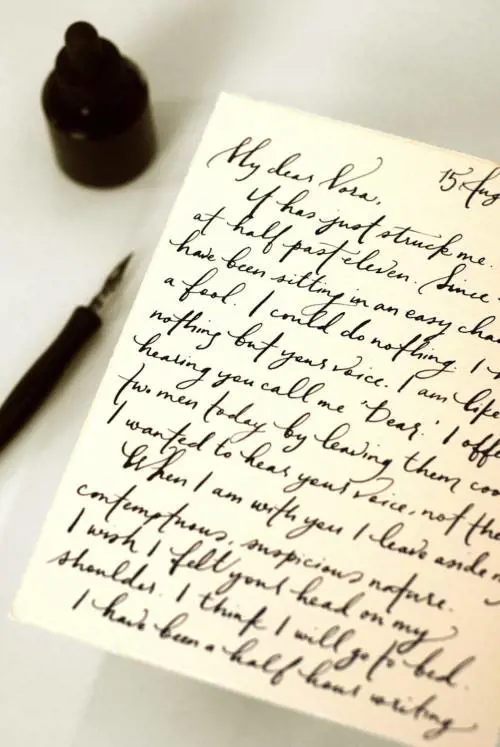 My dear Nora, 15 Aug
It has just struck me.
at half past eleven. Since
have been sitting in an easy chai
a fool. I could do nothing. I h
nothing but your voice. I am like
hearing you call me 'Dear.' I offe
two men today by leaving them coo
I wanted to hear your voice, not the
When I am with you I leave aside m
contemptuous, suspicious nature.
I wish I felt your head on my
shoulder. I think I will go to bed.
I have been a half hour writing